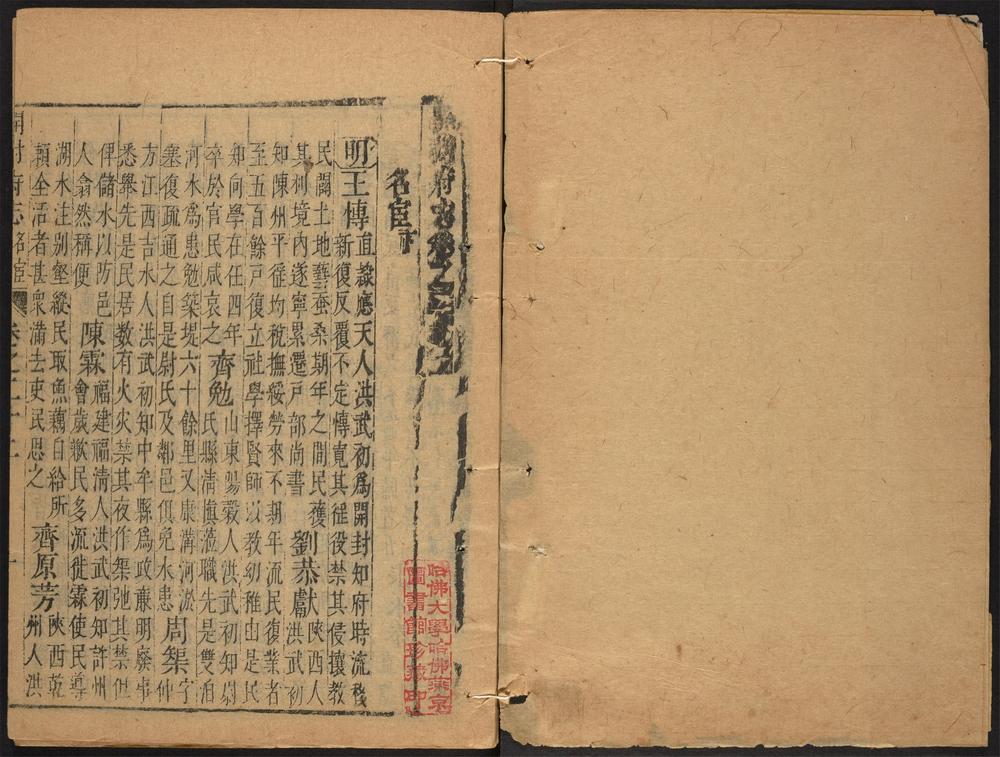 府志卷之二十
名宦下
明王傳直隸應天人洪武初爲開封知府時流移
新復反覆不定傳寬其徭役禁其侵攘教
民闢土地藝蚕桑期年之間民獲
其利境内遂寧累遷戸部尚書劉恭獻大陝西人
洪武初
知陳州平徭均稅撫綏勞來不期年流民復業者
至五百餘戸復立社學擇賢師以教幼稚由是民
知向學在任四年
卒於官民咸哀之齊勉山東陽穀人洪武初知尉
氏縣清慎蒞職先是雙洎
河水爲患勉築堤六十餘里又康溝河淤
塞復疏通之自是尉氏及鄰邑俱免水患周榘字
仲
方江西吉水人洪武初知中牟縣爲政亷明廢事
悉舉先是民居数有火灾禁其夜作榘弛其禁但
俾儲水以防邑
人翕然稱便陳霖福建福清人洪武初知許州
會歲歉民多流徙霖使民導
湖水注别壑縱民取魚藕自給所
頼全活者甚衆满去吏民思之齊原芳陝西乾
州人洪
開封府志名宦 卷之二十二 一
哈佛大學哈佛燕京
圖書館珍藏印